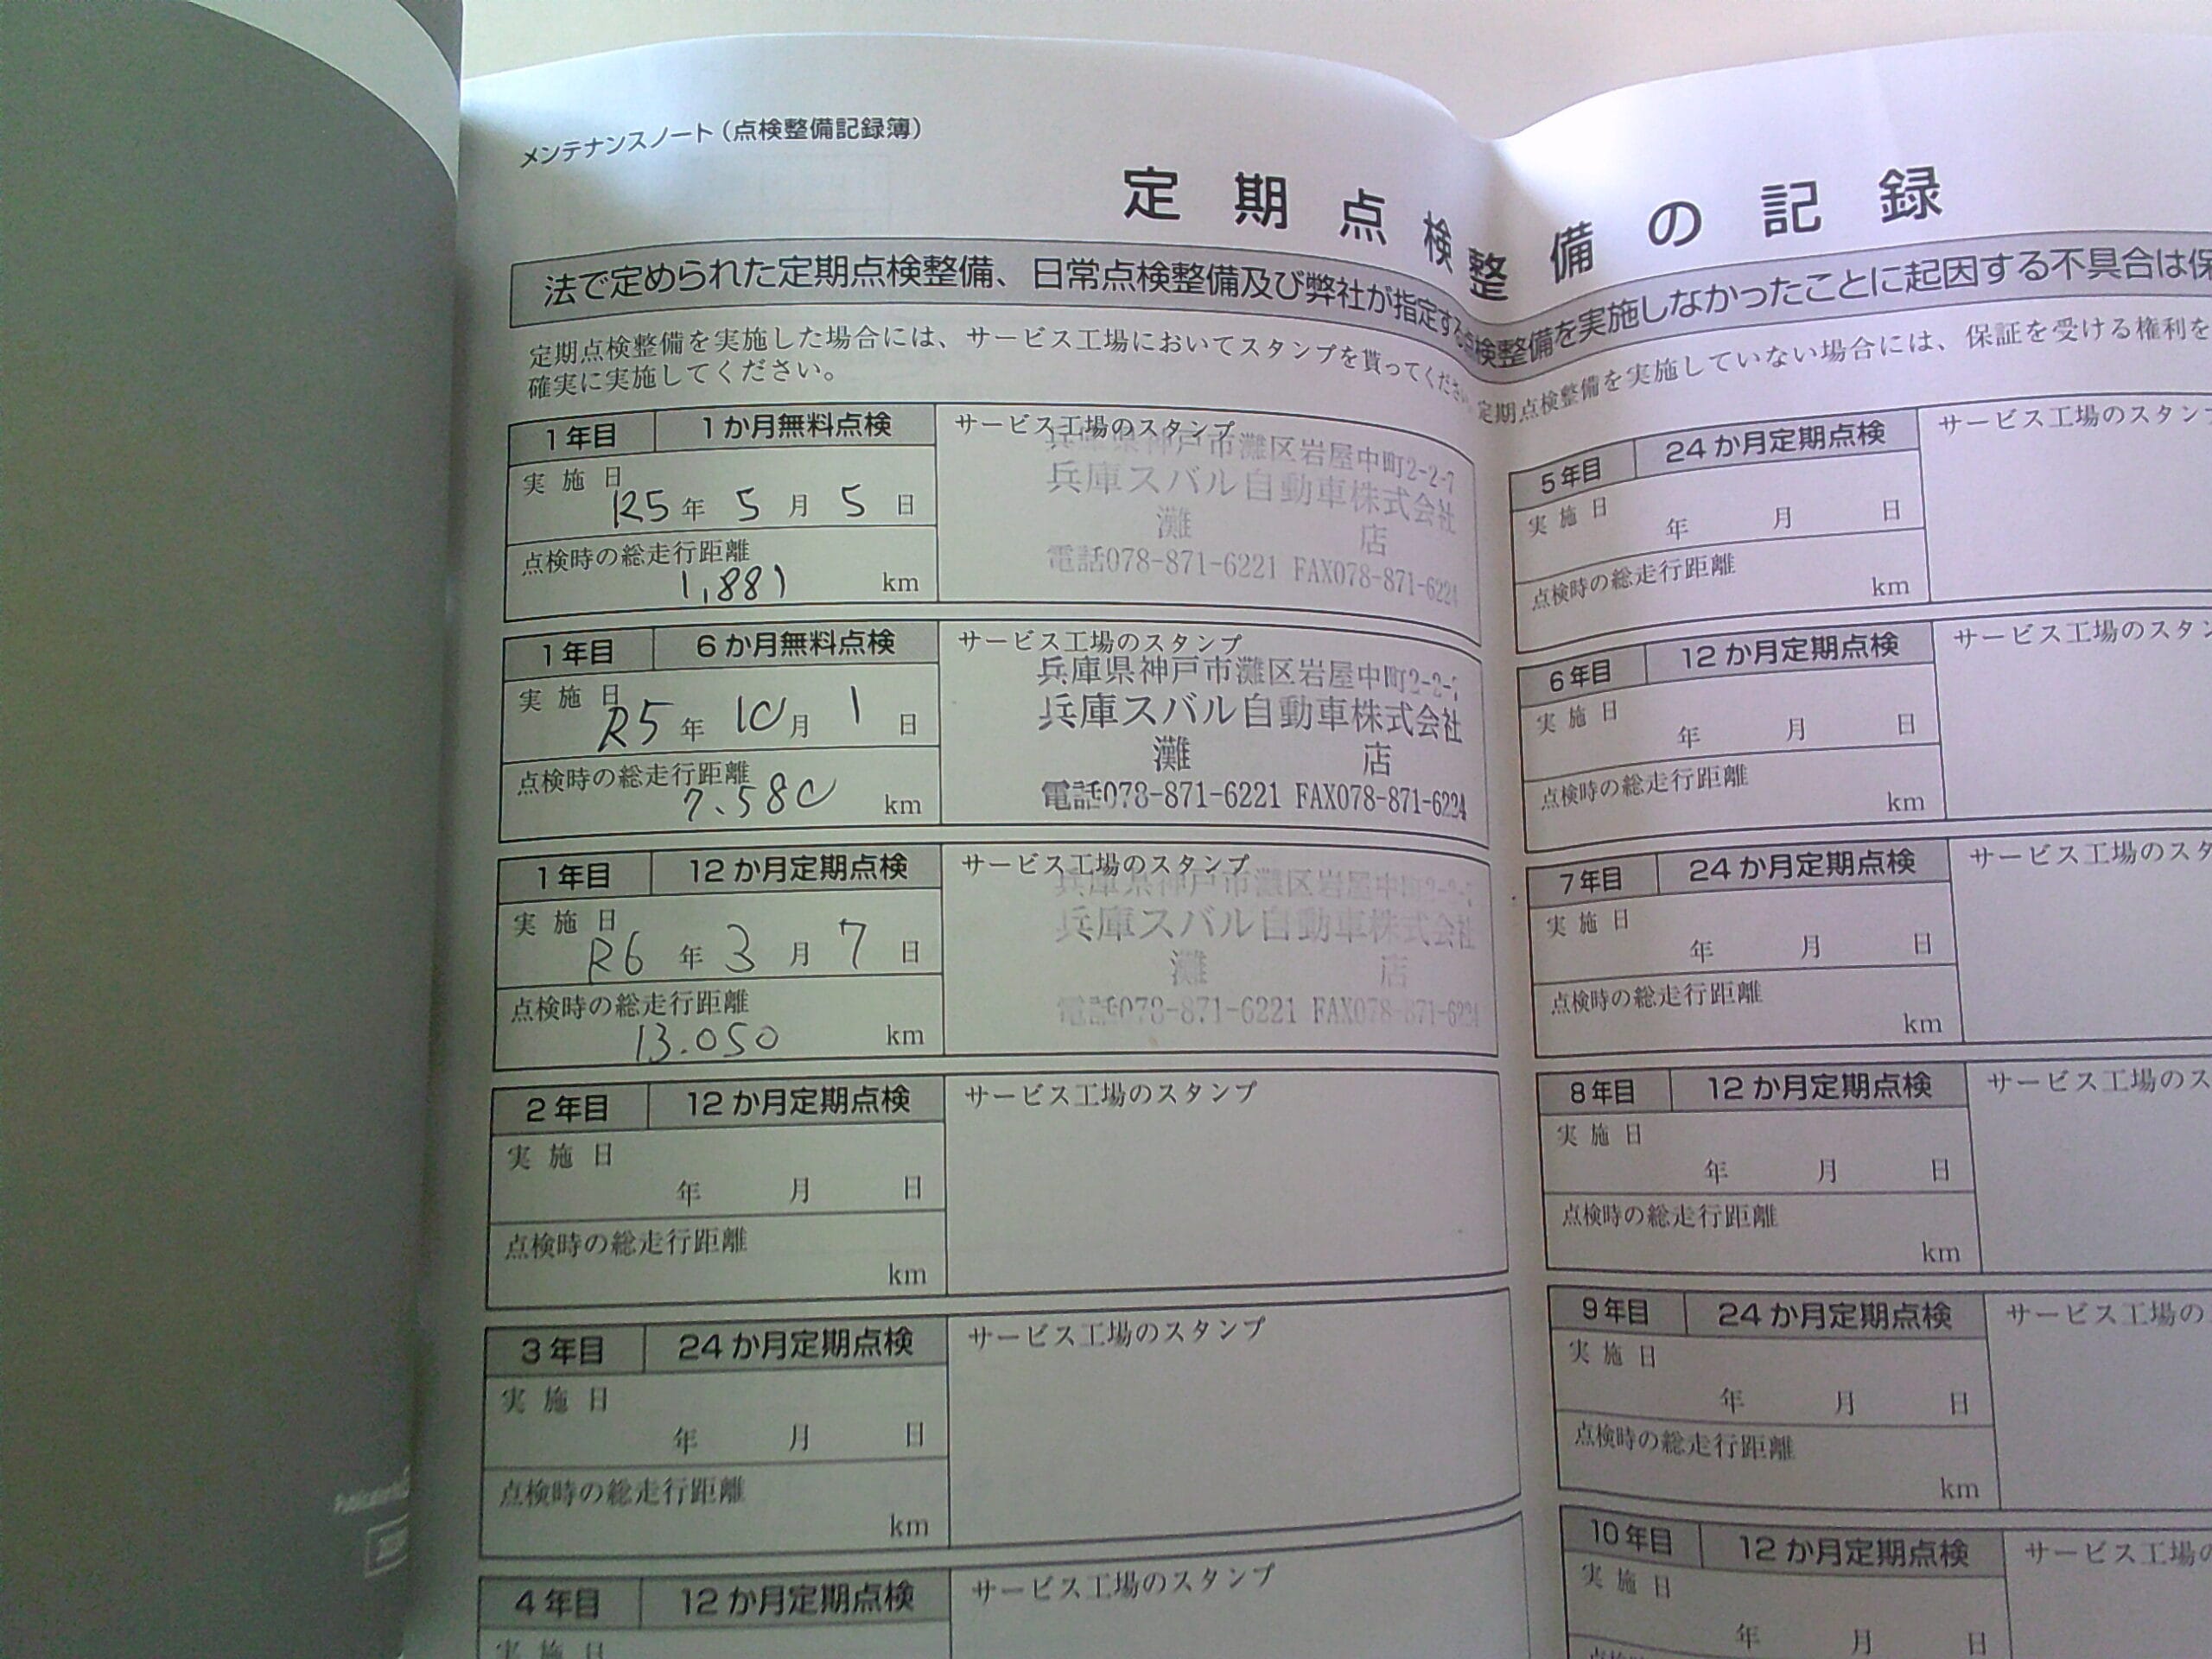 メンテナンスノート（点検整備記録簿）
定期点検整備の記録
法で定められた定期点検整備、日常点検整備及び弊社が指定する点検整備を実施しなかったことに起因する不具合は保
定期点検整備を実施した場合には、サービス工場においてスタンプを貰ってください。定期点検整備を実施していない場合には、保証を受ける権利を
確実に実施してください。
1年目 1か月無料点検
実施日
R5年 5月 5日
点検時の総走行距離
1,881 km
サービス工場のスタンプ
兵庫県神戸市灘区岩屋中町2-2-7
兵庫スバル自動車株式会社
灘 店
電話078-871-6221 FAX078-871-6224
1年目 6か月無料点検
実施日
R5年 10月 1日
点検時の総走行距離
7.580 km
サービス工場のスタンプ
兵庫県神戸市灘区岩屋中町2-2-7
兵庫スバル自動車株式会社
灘 店
電話078-871-6221 FAX078-871-6224
1年目 12か月定期点検
実施日
R6年 3月 7日
点検時の総走行距離
13.050 km
サービス工場のスタンプ
兵庫県神戸市灘区岩屋中町2-2-7
兵庫スバル自動車株式会社
灘 店
電話078-871-6221 FAX078-871-6224
2年目 12か月定期点検
実施日
年 月 日
点検時の総走行距離
km
サービス工場のスタンプ
3年目 24か月定期点検
実施日
年 月 日
点検時の総走行距離
km
サービス工場のスタンプ
4年目 12か月定期点検
実施日
サービス工場のスタンプ
5年目 24か月定期点検
実施日
年 月 日
点検時の総走行距離
km
サービス工場のスタン
6年目 12か月定期点検
実施日
年 月 日
点検時の総走行距離
km
サービス工場のスタン
7年目 24か月定期点検
実施日
年 月 日
点検時の総走行距離
km
サービス工場のスタ
8年目 12か月定期点検
実施日
年 月 日
点検時の総走行距離
km
サービス工場のス
9年目 24か月定期点検
実施日
年 月 日
点検時の総走行距離
km
サービス工場の
10年目 12か月定期点検
実施日
年 月 日
サービス工場の